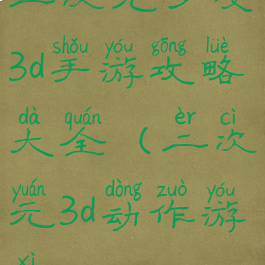 3d手游攻略
shǒu yóu gōng lüè
大全（二次
dà quán èr cì
元3d动作游
yuán dòng zuò yóu
xì